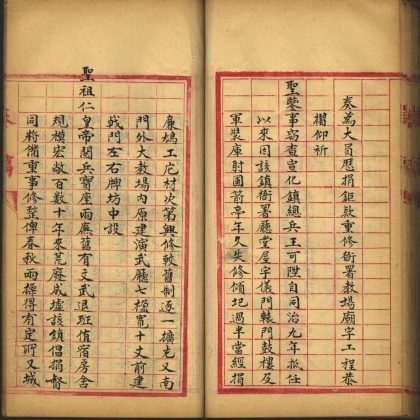 奏為大員歷捐鉅款重修衙署教場廟宇工程恭
摺仰祈
聖鑒事竊查宣化鎮總兵王可陞自同治九年抵任
以來因該鎮衙署廳堂屋宇儀門轅門鼓樓及
軍裝庫射圃箭亭年久失修傾圮過半當經捐
廉鳩工庀材次第興修較舊制逐一擴充又南
門外大教場內原建演武廳七楹寬十丈前建
戟門左右牌坊中設
聖祖仁皇帝閱兵寶座兩廡舊有文武退班值宿房舍
規模宏敞百數十年來荒廢成墟該鎮倡捐督
同將備重事修整俾春秋兩操得有定所又城